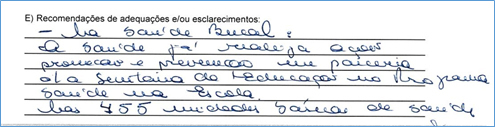 E) Recomendações de adequações e/ou esclarecimentos:
- Na Saúde Bucal:
A saúde já realiza ações
promocao e prevencao em parceria
c/ a Secretaria de Educaçao no Programa
Saúde na Escola.
Nas 455 unidades básicas de saúde